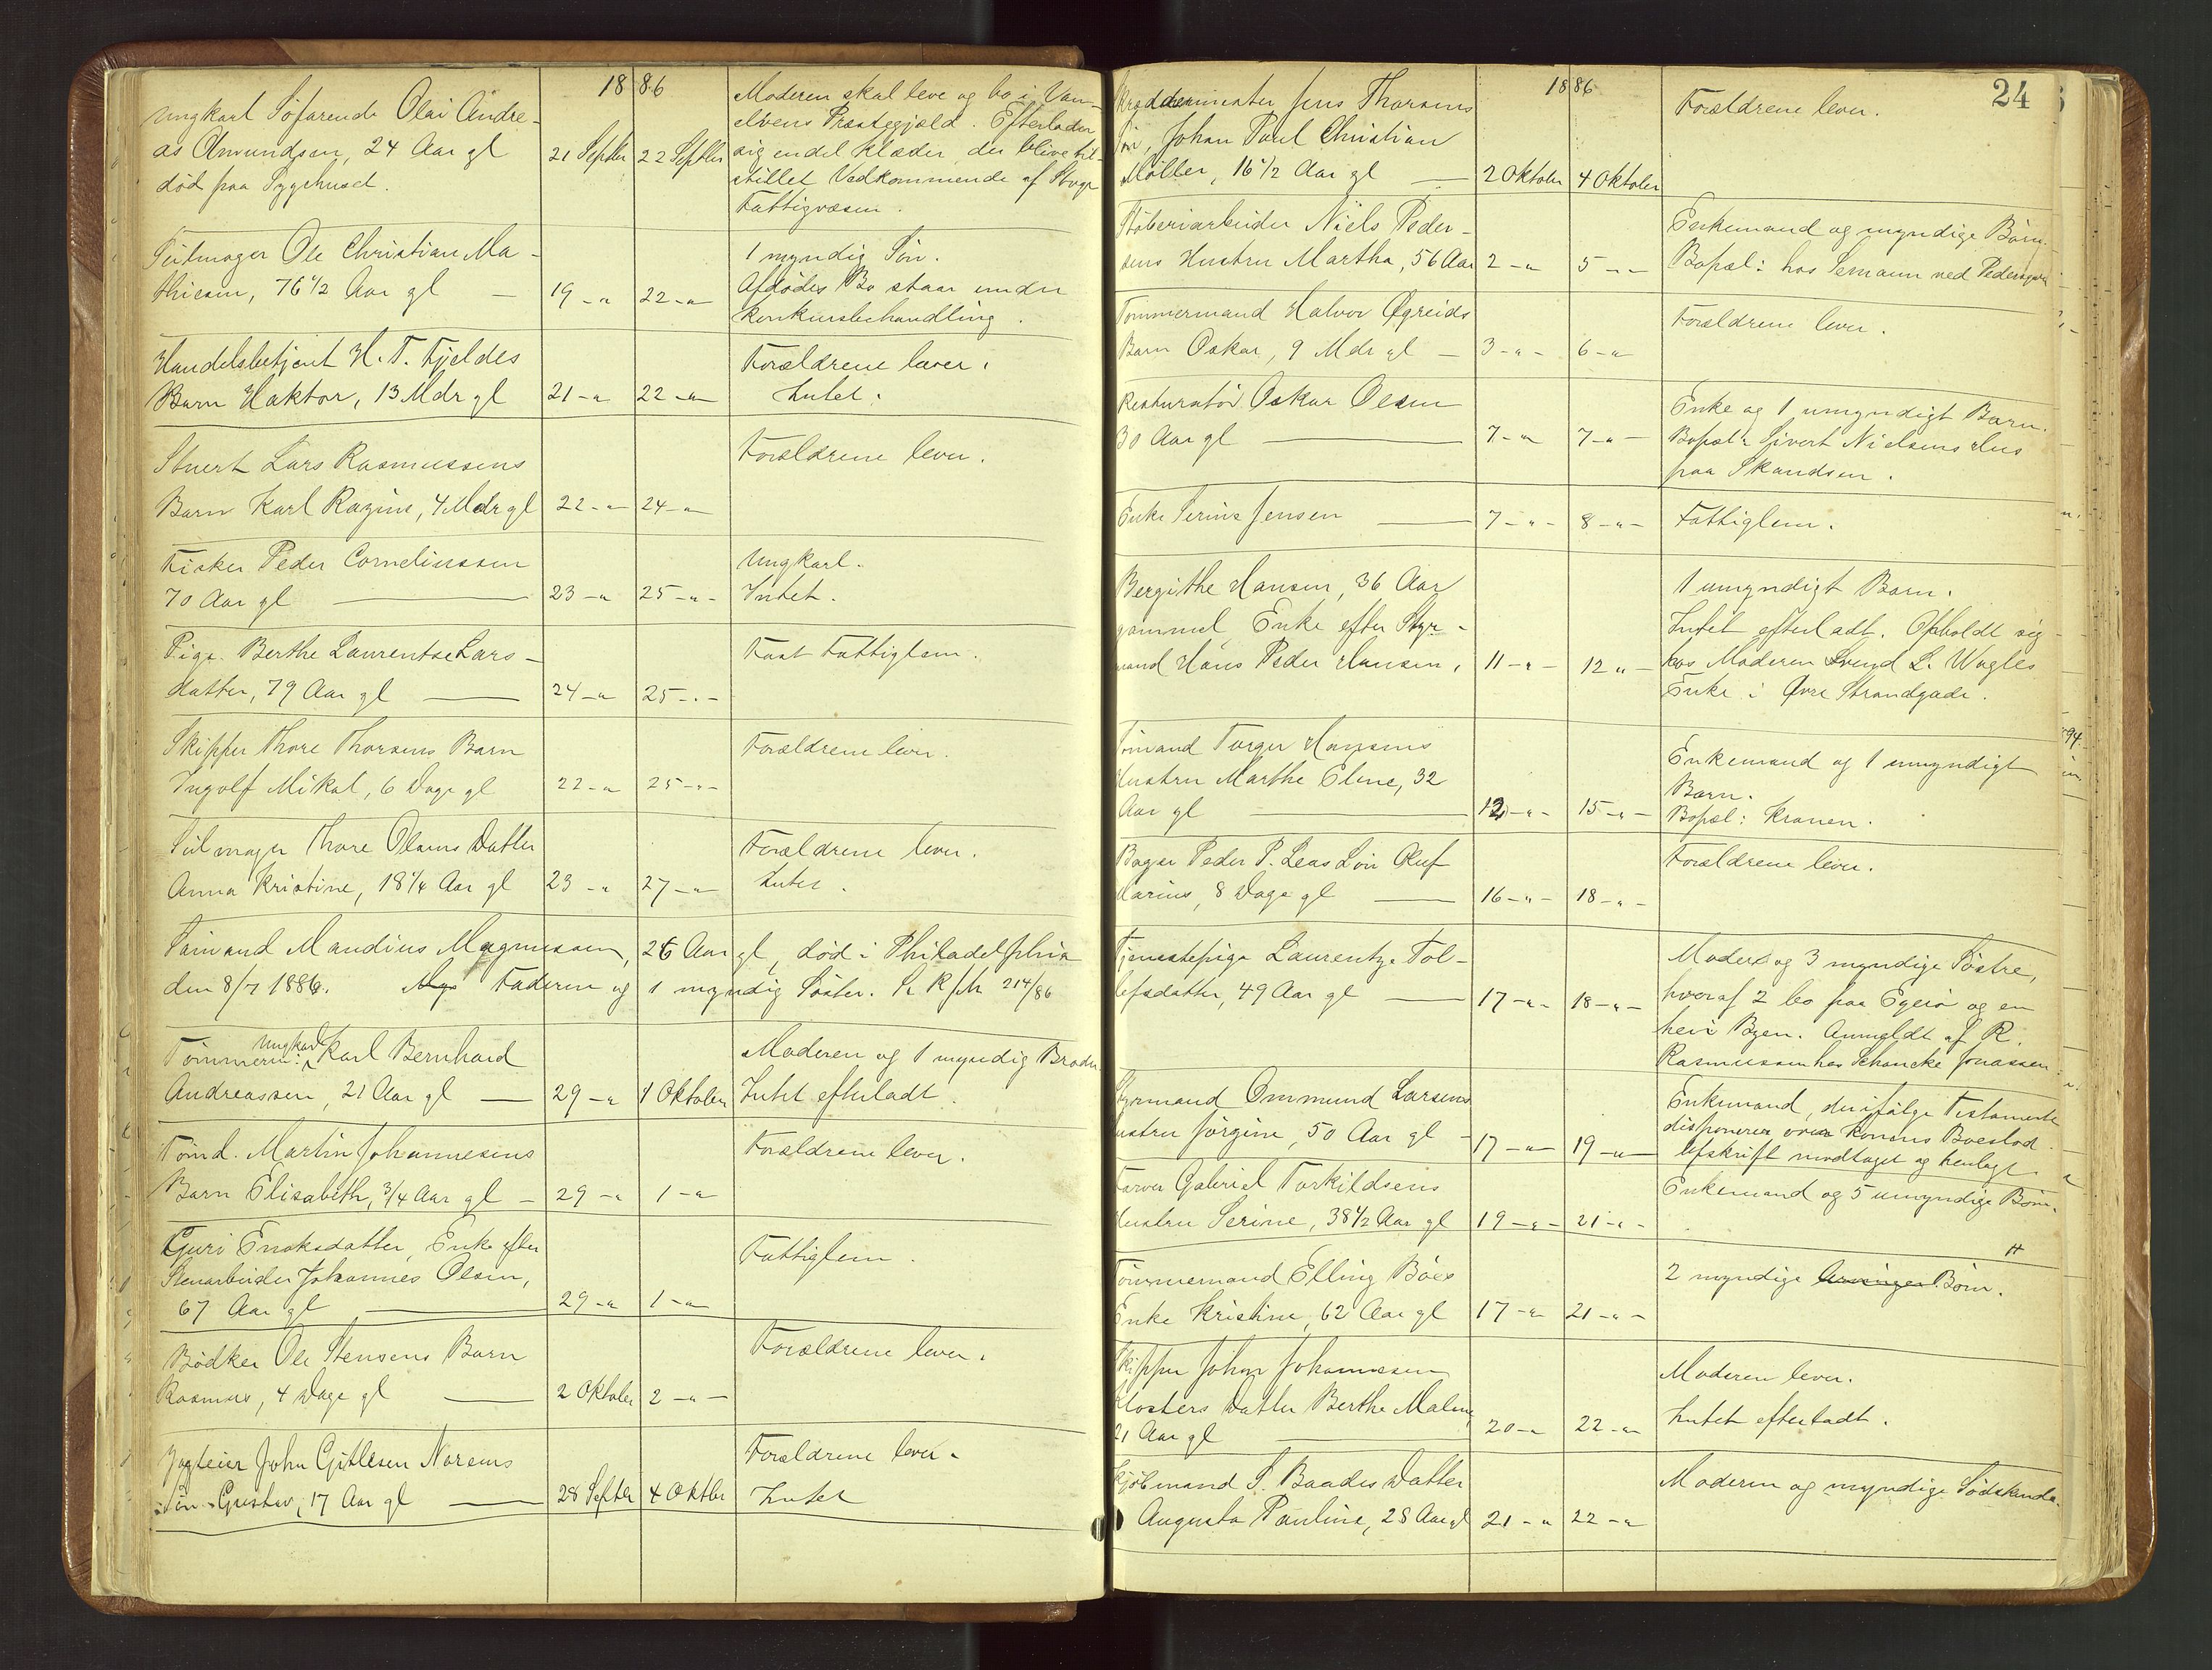 1886
Ungkarl Søfarende Olai Andre-
as Amundsen, 24 Aar gl
død paa Sygehuset.
21 Septbr 22 Septbr
Moderen skal leve og bo i Van-
elvens Præstegjeld. Efterlader
sig endel Klæder, der blive til-
stillet Vedkommende af
Fattigvæsen.
Seilmager Ole Christian Ma-
thiesen, 76 1/2 Aar gl —
19 -"- 22 -"-
1 myndig Søn.
Afdødes Bo staar under
Konkursbehandling.
Handelsbetjent H. T. Fjeldes
Barn Haktor, 13 Mdr gl
21 -"- 22 -"-
Forældrene lever.
Intet.
Stuert Lars Rasmussens
Barn Karl Ragin, 4 Mdr gl
22 -"- 24 -"-
Forældrene lever.
Fisker Peder Corneliussen
70 Aar gl —
23 -"- 25 -"-
Ungkarl.
Intet.
Pige Berthe Laurentse Lars-
datter, 79 Aar gl —
24 -"- 25 -"-
Fast Fattiglem.
Skipper Thore Thorsens Barn
Ingolf Mikal, 6 Dage gl
22 -"- 25 -"-
Forældrene lever.
Seilmager Thore Olsens Datter
Anna Kristine, 18 1/4 Aar gl
23 -"- 27 -"-
Forældrene lever.
Intet.
Sømand Mandius Magnussen, 26 Aar gl, død i Philadelphia
den 8/7 1886. Faderen og 1 myndig Søster. Se R/M 214/86
Tømmerm: Ungkarl Karl Bernhard
Andreassen, 21 Aar gl —
29 -"- 1 Oktober
Moderen og 1 myndig Broder
Intet efterladt.
Tømd. Martin Johannesens
Barn Elisabeth, 3/4 Aar gl —
29 -"- 1 -"-
Forældrene lever.
Guri Enoksdatter, Enke efter
Stenarbeider Johannes Olsen,
67 Aar gl —
29 -"- 1 -"-
Fattiglem.
Bødker Ole Stensens Barn
Rasmus, 4 Dage gl —
2 Oktober 2 -"-
Forældrene lever.
Jagteier John Gitlesen Norems
Søn Gustav, 17 Aar gl —
28 Septbr 4 Oktbr
Forældrene lever.
Intet
24
1886
Skræddermester Jens Thorsens
Søn, Johan Paul Christian
Møller, 16 1/2 Aar gl —
2 Oktober 4 Oktober
Forældrene lever.
Støberiarbeider Niels Peder-
sens Hustru Martha, 56 Aar
2 -"- 5 -"-
Enkemand og myndige Børn.
Bopæl: hos Semann ved
Tømmermand Halvor Øgreids
Barn Oskar, 9 Mdr gl —
3 -"- 6 -"-
Forældrene lever.
Restauratør Oskar Olsen
30 Aar gl —
7 -"- 7 -"-
Enke og 1 umyndigt Barn.
Bopæl: Sivert Nielsens Hus
paa Skandsen.
Enke Serine Jensen —
7 -"- 8 -"-
Fattiglem.
Bergithe Hansen, 36 Aar
gammel Enke efter Styr-
mand Hans Peder Hansen.
11 -"- 12 -"-
1 umyndigt Barn.
Intet efterladt. Opholdt sig
hos Moderen Svend L. Wagles
Enke i Øvre Strandgade.
Sømand Torger Hansens
Hustru Marthe Eline, 32
Aar gl —
12 -"- 15 -"-
Enkemand og 1 umyndigt
Barn.
Bopæl: Kranen.
Bager Peder P. Leas Søn Oluf
Marius, 8 Dage gl —
16 -"- 18 -"-
Forældrene lever.
Tjenestepige Laurentze Tol-
lefsdatter, 49 Aar gl —
17 -"- 18 -"-
Moder og 3 myndige Søstre,
hvoraf 2 bo paa Egerø og en
her i Byen. Anmeldt af R.
Rasmussen hos Schancke Jonassen.
Styrmand Ommund Larsens
Hustru Jørgine, 50 Aar gl —
17 -"- 19 -"-
Enkemand, der ifølge Testamente
disponerer over Konens Boeslod.
Afskrift modtaget og henlagt.
Farver Gabriel Torkildsens
Hustru Serine, 38 1/2 Aar gl
19 -"- 21 -"-
Enkemand og 5 umyndige Børn.
Tømmermand Elling Bøes
Enke Kristine, 62 Aar gl
17 -"- 21 -"-
2 myndige Arvinger Børn.
Skipper Johan Johannesen
Klosters Datter Berthe Malene
21 Aar gl —
20 -"- 22 -"-
Moderen lever.
Intet efterladt.
Kjøbmand S. Baades Datter
Augusta Pauline, 28 Aar gl
21 -"- 22 -"-
Moderen og myndige Sødskende.